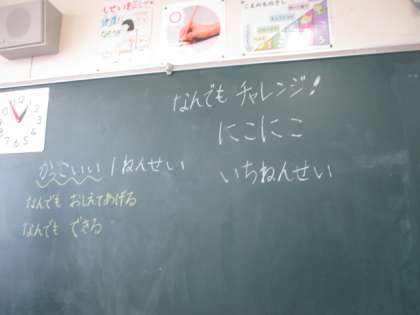 なんでもチャレンジ!
にこにこ
いちねんせい
かっこいい1ねんせい
なんでも おしえてあげる
なんでも できる